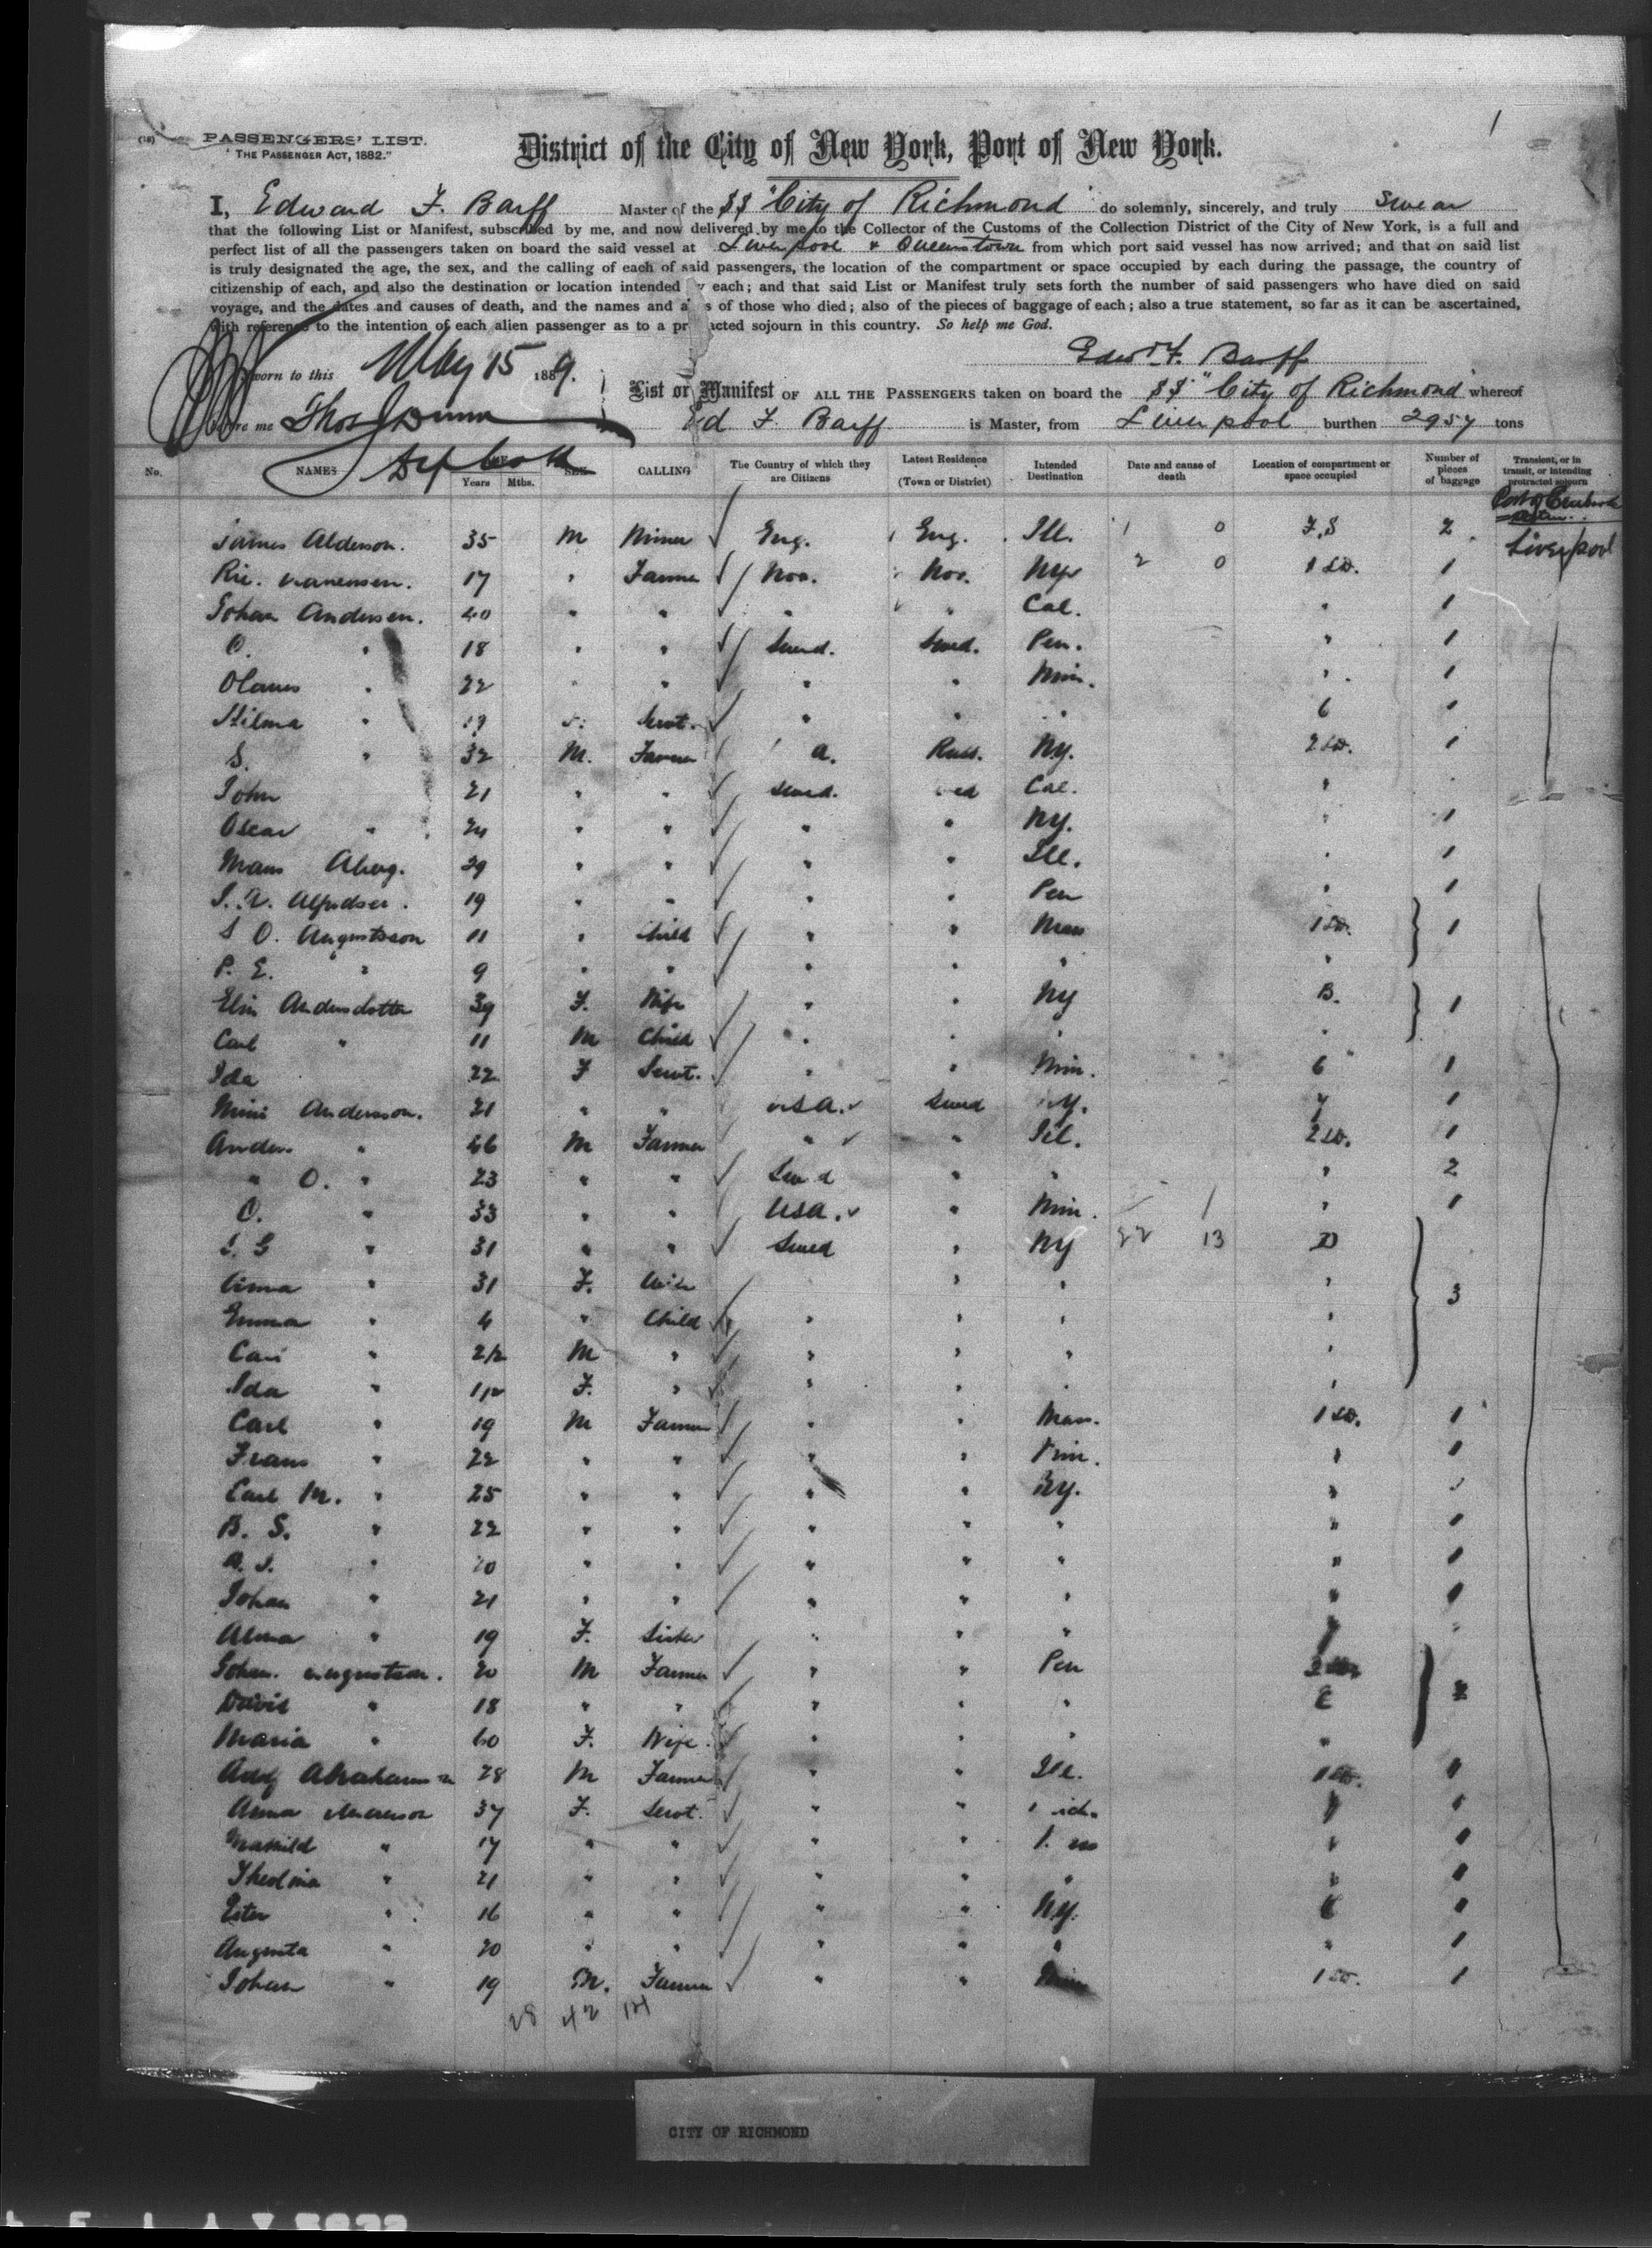 1
PASSENGERS' LIST.
"THE PASSENGER ACT, 1882."
District of the City of New York, Port of New York.
I, Edward F. Barff Master of the SS "City of Richmond" do solemnly, sincerely, and truly swear
that the following List or Manifest, subscribed by me, and now delivered by me to the Collector of the Customs of the Collection District of the City of New York, is a full and
perfect list of all the passengers taken on board the said vessel at Liverpool & Queenstown from which port said vessel has now arrived; and that on said list
is truly designated the age, the sex, and the calling of each of said passengers, the location of the compartment or space occupied by each during the passage, the country of
citizenship of each, and also the destination or location intended by each; and that said List or Manifest truly sets forth the number of said passengers who have died on said
voyage, and the dates and causes of death, and the names and a s of those who died; also of the pieces of baggage of each; also a true statement, so far as it can be ascertained,
with reference to the intention of each alien passenger as to a pr acted sojourn in this country. So help me God.
Edwd F. Barff
Sworn to this May 15 1889.
List or Manifest OF ALL THE PASSENGERS taken on board the SS "City of Richmond" whereof
before me Thos Dunn Ed F. Barff is Master, from Liverpool burthen 2957 tons
No. NAMES Years Mths. SEX CALLING The Country of which they are Citizens Latest Residence (Town or District) Intended Destination Date and cause of death Location of compartment or space occupied Number of pieces of baggage Transient, or in transit, or intending protracted sojourn
Port of
James Alderson. 35 M Miner Eng. Eng. Ill. 1 0 F.S 2 Liverpool
Ric. 17 " Farmer Nor. Nor. NY 2 0 1 SD. 1
Johan Andersen. 40 " " " " Cal. " 1
O. " 18 " " Swed. Swed. Pen. " 1
" 22 " " " " Min. " 1
Hilma " 19 F. Servt. " " " 6 1
S. " 32 M. Farmer a. Russ. N.Y. 2 SD. 1
John 21 " " Swed. ed Cal. "
Oscar " 24 " " " " NY. " 1
Mans Aberg. 29 " " " " Ill. " 1
Alfredsen. 19 " " " " Pen " 1
S O. Augustsson 11 " Child " " Mass 1 SD. 1
P. E. " 9 " " " " " "
Elin Andersdotter 39 F. Wife " " NY B. 1
Carl " 11 M Child " " " "
Ida 22 F Servt. " " Min. 6 1
Mini Andersson. 21 " " USA. Swed .Y. 7 1
Anders. " 46 M Farmer " " Ill. 2 SD. 1
" O. " 23 " " Swed " " " 2
O. " 33 " " USA. " Min. " 1
G " 31 " " Swed " NY 22 13 D
Anna " 31 F. Wife " " " 3
Emma " 4 " Child " " " "
Carl " 2/12 M " " " " "
Ida " 1/12 F. " " " " "
Carl " 19 M Farmer " " Mass. 1 SD. 1
Frans " 22 " " " " Min. " 1
Carl M. " 25 " " " " NY. "
B. S. " 22 " " " " " " 1
A. J. " 20 " " " " " " 1
Johan " 21 " " " " " " 1
Alma " 19 F. Sister " " " 7 "
Johan. Augustson. 20 M Farmer " " Pen
David " 18 " " " " " E
Maria " 60 F. Wife " " " "
Adf Abrahamsn 28 M Farmer " " Ill. 1 SD. 1
Anna Anderson 37 F. Servt. " " ich. 1
Mathild " 17 " " " " 1
" 21 " " " " " " 1
Ester " 16 " " " " N.Y. 6 1
Augusta " 20 " " " " " " 1
Johan " 19 M. Farmer " " 1 SD. 1
28 42 14
CITY OF RICHMOND